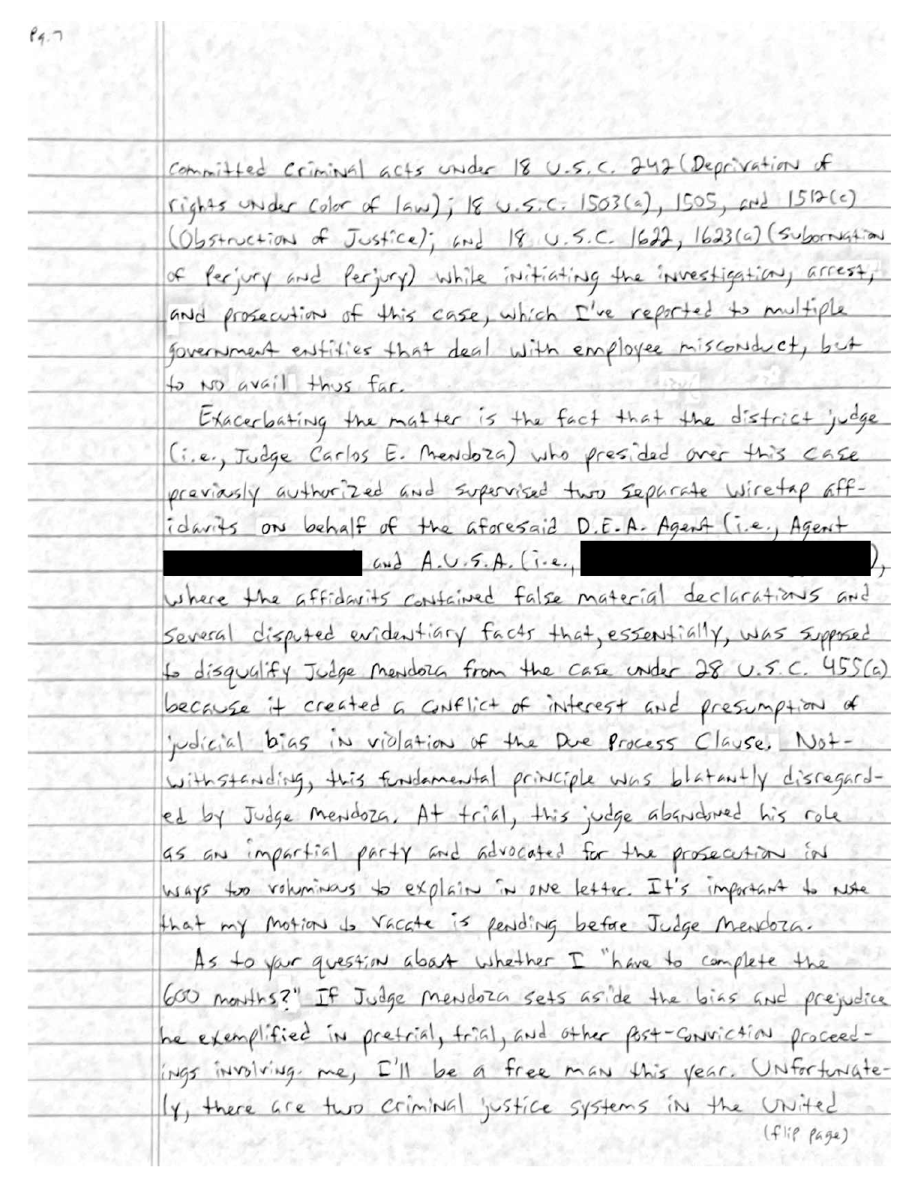 Pg.7
committed criminal acts under 18 U.S.C. 242 (Deprivation of
rights under color of law); 18 U.S.C. 1503(a), 1505, and 1512(c)
(Obstruction of Justice); and 18 U.S.C. 1622, 1623(a) (Subornation
of Perjury and Perjury) while initiating the investigation, arrest,
and prosecution of this case, which I've reported to multiple
government entities that deal with employee misconduct, but
to no avail thus far.
Exacerbating the matter is the fact that the district judge
(i.e., Judge Carlos E. Mendoza) who presided over this case
previously authorized and supervised two separate wiretap aff-
idavits on behalf of the aforesaid D.E.A. Agent (i.e., Agent
and A.U.S.A. (i.e., ),
where the affidavits contained false material declarations and
several disputed evidentiary facts that, essentially, was supposed
to disqualify Judge Mendoza from the case under 28 U.S.C. 455(a)
because it created a conflict of interest and presumption of
judicial bias in violation of the Due Process Clause. Not-
withstanding, this fundamental principle was blatantly disregard-
ed by Judge Mendoza. At trial, this judge abandoned his role
as an impartial party and advocated for the prosecution in
ways too voluminous to explain in one letter. It's important to note
that my motion to vacate is pending before Judge Mendoza.
As to your question about whether I "have to complete the
600 months?" If Judge Mendoza sets aside the bias and prejudice
he exemplified in pretrial, trial, and other post-conviction proceed-
ings involving me, I'll be a free man this year. Unfortunate-
ly, there are two criminal justice systems in the United
(flip page)